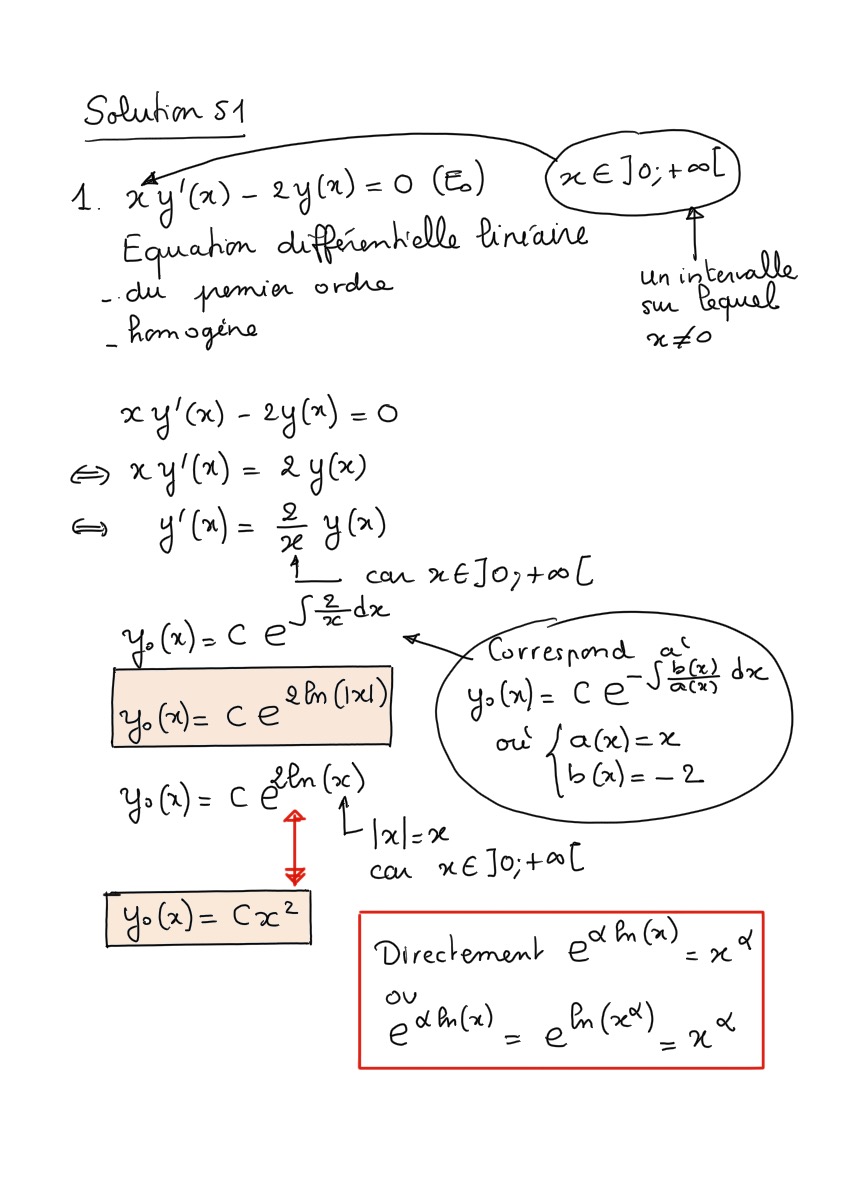 Solution S1
1. x y'(x) - 2y(x) = 0 (E₀)
x ∈ ]0;+∞[
Equation différentielle linéaire
- du premier ordre
- homogène
un intervalle
sur lequel
x ≠ 0
x y'(x) - 2y(x) = 0
⇔ x y'(x) = 2 y(x)
⇔ y'(x) = 2/x y(x)
car x ∈ ]0;+∞[
y₀(x) = C e^{∫ 2/x dx}
Correspond à
y₀(x) = C e^{-∫ b(x)/a(x) dx}
où { a(x) = x
b(x) = -2
y₀(x) = C e^{2 ln(|x|)}
y₀(x) = C e^{2ln(x)}
|x| = x
car x ∈ ]0;+∞[
y₀(x) = C x²
Directement e^{α ln(x)} = x^α
ou
e^{α ln(x)} = e^{ln(x^α)} = x^α